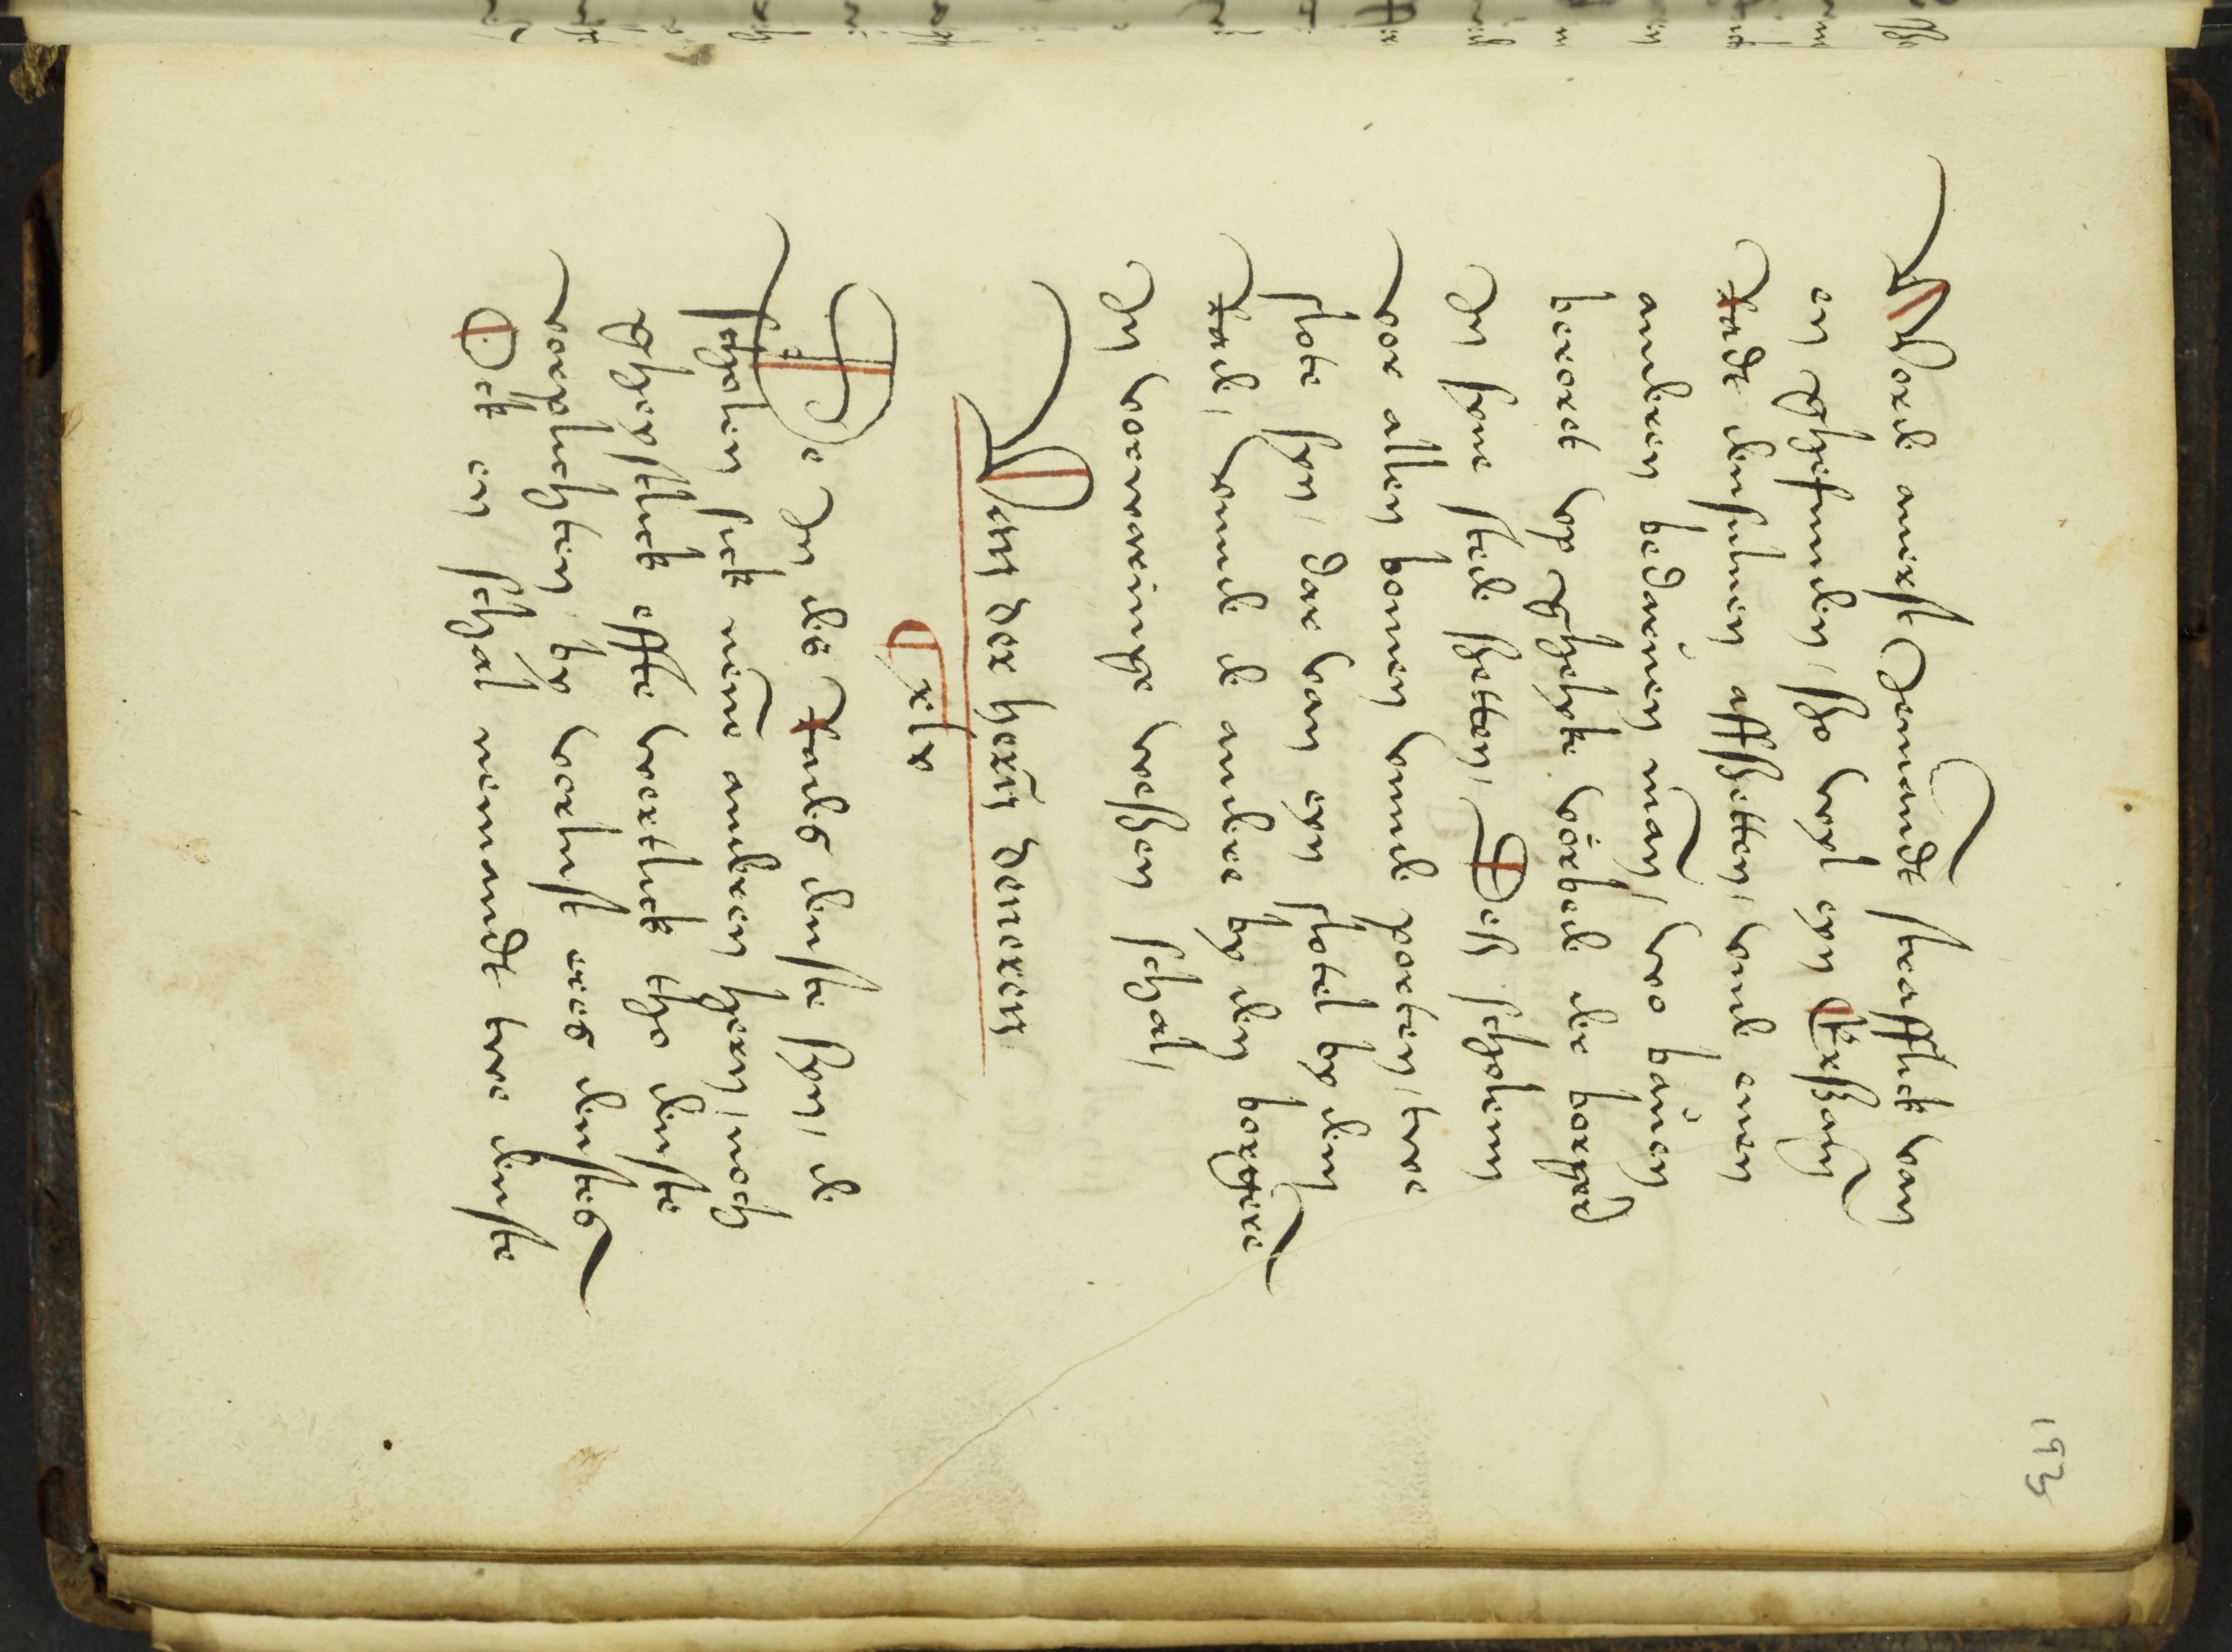 193
Wördt auerst Jemandt strafflick van
en Ghefunden, szo vor eyn Erßam
Radt densuluen affßetten, vnd enen
anderen bedaruen man, vor bauen
beroret vp ghelyke vörbede der borger
In syne stede szetten, Desz scholenn
vor allen bomen vnnde porten, twe
slote syn, dar van eyn slotel by dem
Rade, vnnde de andere by den borgere
In vorwaringe weßen schal,
Van der heren deneren
xlix
De In des Rades denste syn, de
scholen sick nene anderen heren, noch
Geystlick effte wertlick tho denste
vorplichten, by vorlust eres denstes
Ock en schal nemandt twe denste